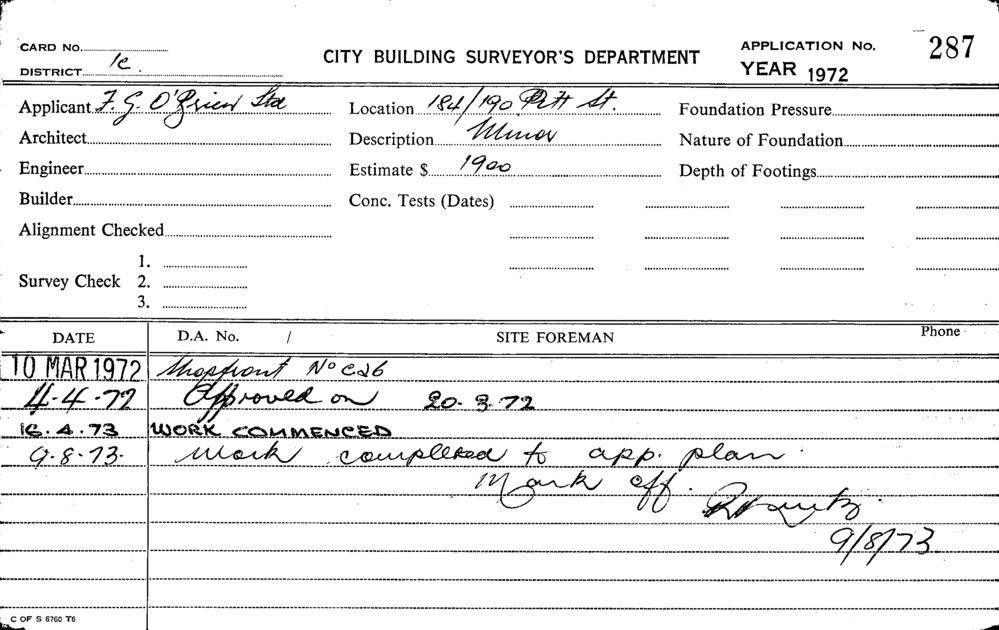 CARD No.
DISTRICT 1c.
CITY BUILDING SURVEYOR'S DEPARTMENT
APPLICATION No. 287
YEAR 1972
Applicant F. G. O'Brien Ltd
Location 184/190 Pitt St.
Foundation Pressure
Architect
Description Minor
Nature of Foundation
Engineer
Estimate $ 1900
Depth of Footings
Builder
Conc. Tests (Dates)
Alignment Checked
Survey Check 1.
2.
3.
DATE D.A. No. / SITE FOREMAN Phone
10 MAR 1972 Shopfront No C26
4-4-72 Approved on 20.3.72
16.4.73 WORK COMMENCED
9.8.73. Work completed to app. plan.
Mark off.
9/8/73
C OF S 6760 T6